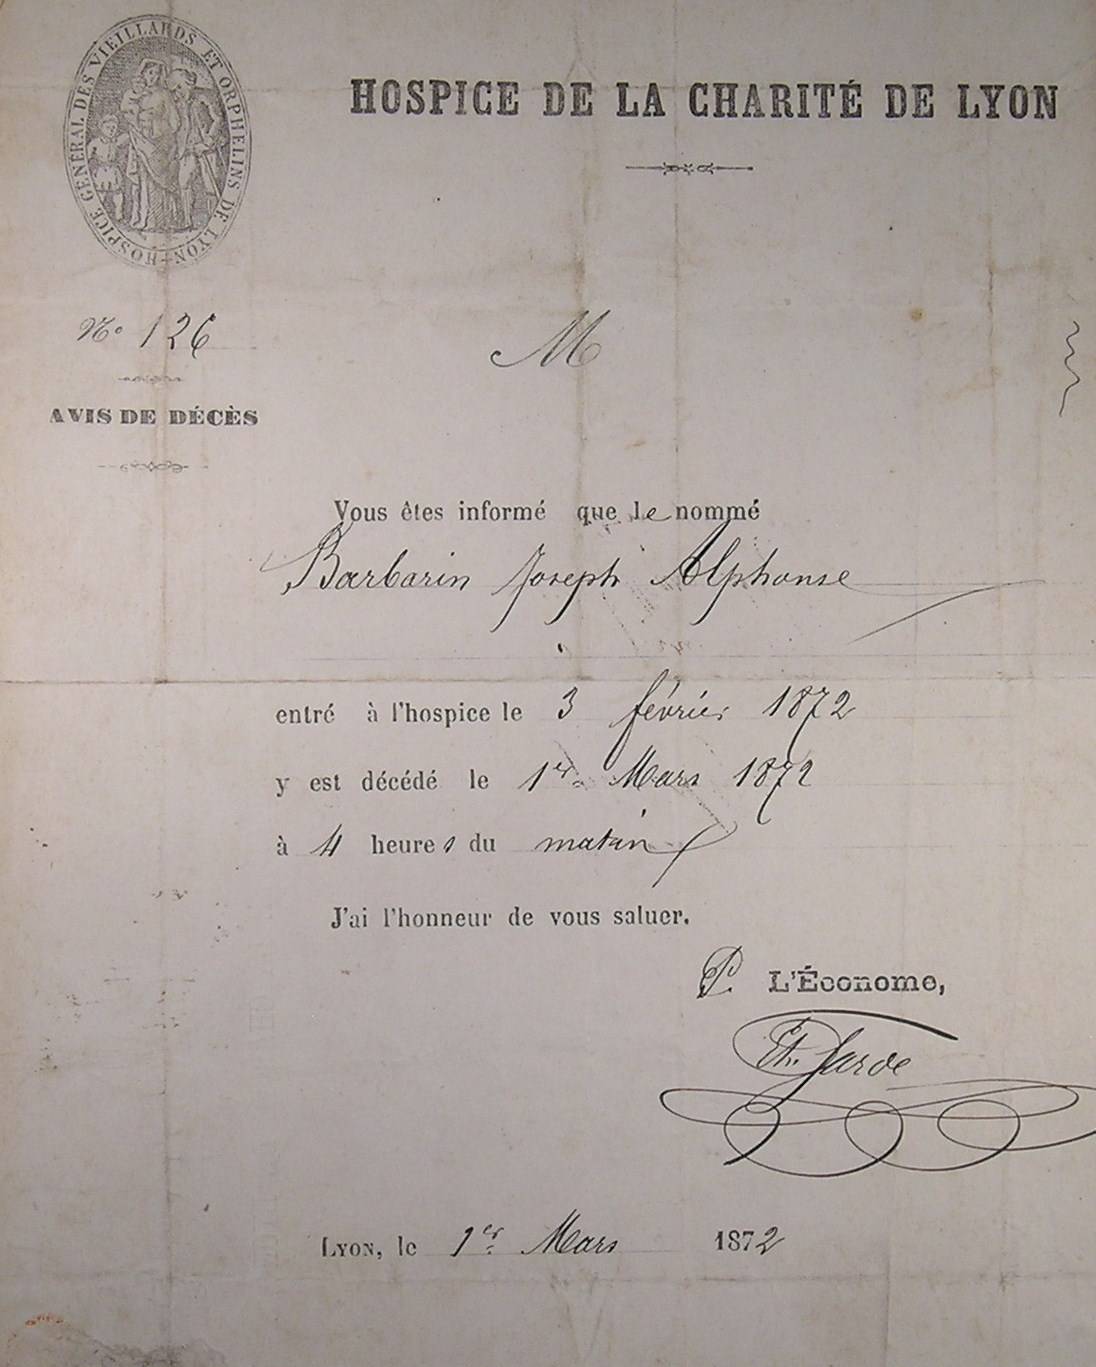 HOSPICE GÉNÉRAL DES VIEILLARDS ET ORPHELINS DE LYON
HOSPICE DE LA CHARITÉ DE LYON
No 126
AVIS DE DÉCÈS
M
Vous êtes informé que le nommé
Barbarin Joseph Alphonse
entré à l'hospice le 3 février 1872
y est décédé le 1er Mars 1872
à 4 heures du matin
J'ai l'honneur de vous saluer.
P. L'Économe,
LYON, le 1er Mars 1872